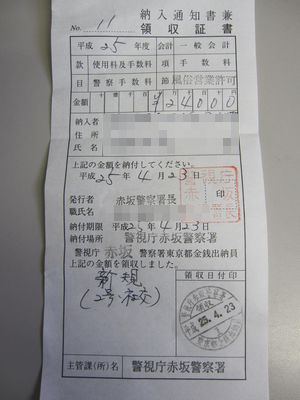 納入通知書兼
No. 11 領収証書
平成 25 年度 会計 一般会計
款 使用料及手数料 項 手数料
目 警察手数料 節 風俗営業許可
金額 ¥24000
納入者
住所
氏名
上記の金額を納付してください。
平成 25 年 4 月 23 日
発行者 赤坂警察署長
職氏名
印
納付期限 平成 25 年 4 月 23 日
納付場所 警視庁赤坂警察署
警視庁 赤坂 警察署東京都金銭出納員
上記の金額を領収しました。
新規
(2号・社交)
領収日付印
領収
25.4.23
主管課(所)名 警視庁赤坂警察署